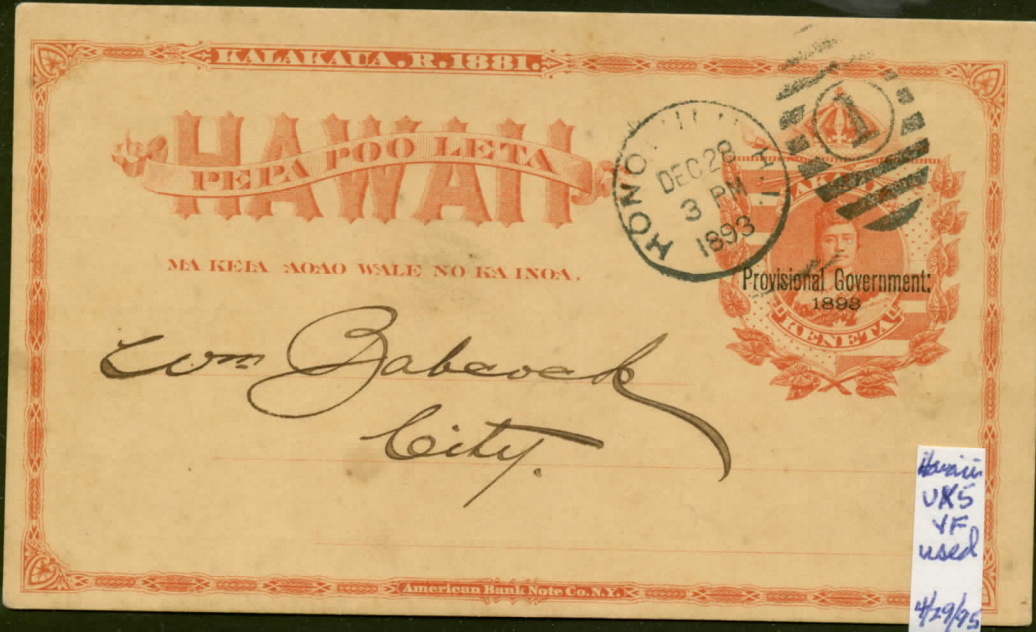 KALAKAUA.R.1881.
HAWAII
PEPA POO LETA
MA KEIA AOAO WALE NO KA INOA.
HONO
DEC 28
3 PM
1893
H.I.
1
AKAHI
Provisional Government:
1893
KENETA
Wm Babcock
City.
American Bank Note Co. N.Y.
Hawaii
UX5
VF
used
4/29/95